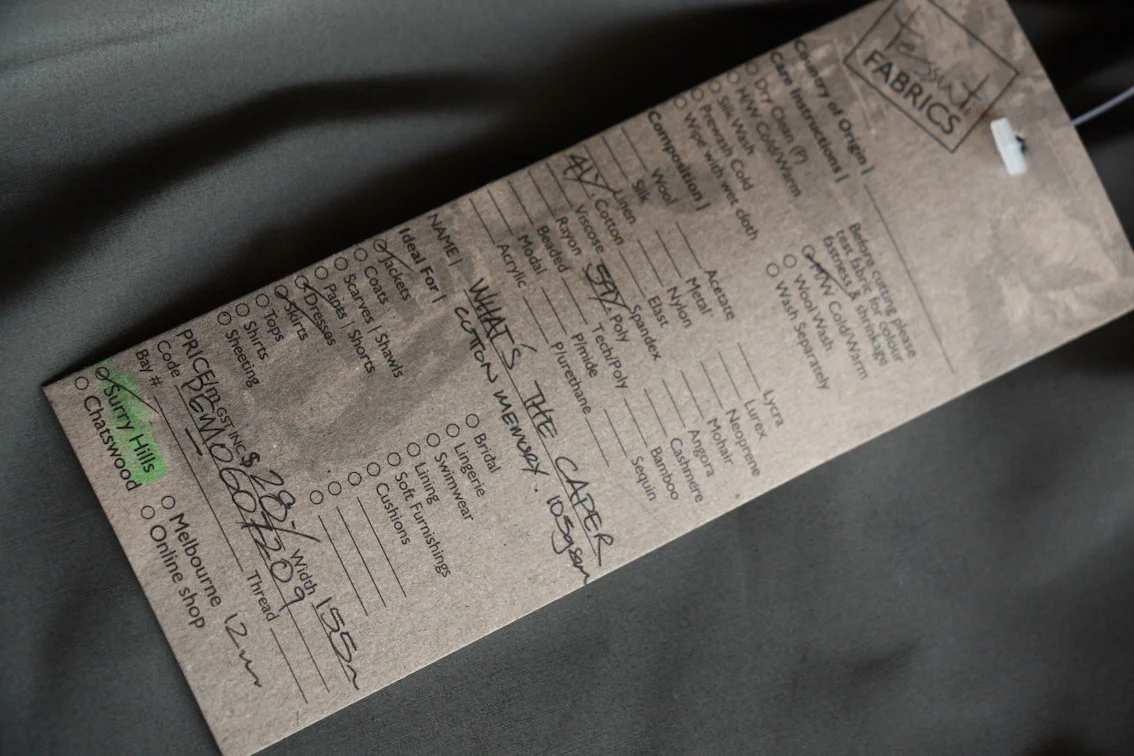 Tessuti
FABRICS
Country of Origin |
Care Instructions |
Before cutting please
test fabric for colour
fastness & shrinkage
Dry Clean (P)
H/W Cold/Warm
Silk Wash
Prewash Cold
Wipe with wet cloth
M/W Cold/Warm
Wool Wash
Wash Separately
Composition |
Wool
Silk
Linen
41% Cotton
Viscose
Rayon
Beaded
Modal
Acrylic
Acetate
Metal
Nylon
Elast
Spandex
59% Poly
Tech/Poly
P/mide
P/urethane
Lycra
Lurex
Neoprene
Mohair
Angora
Cashmere
Bamboo
Sequin
NAME | WHAT'S THE CAPER
COTTON MEMORY. 105gsm
Ideal For |
Jackets
Coats
Scarves | Shawls
Pants | Shorts
Dresses
Skirts
Tops
Shirts
Sheeting
Bridal
Lingerie
Swimwear
Lining
Soft Furnishings
Cushions
PRICE/m GST INC $ 28/- Width 155m
Code Thread
Bay #
Surry Hills Melbourne 12m
Chatswood Online shop